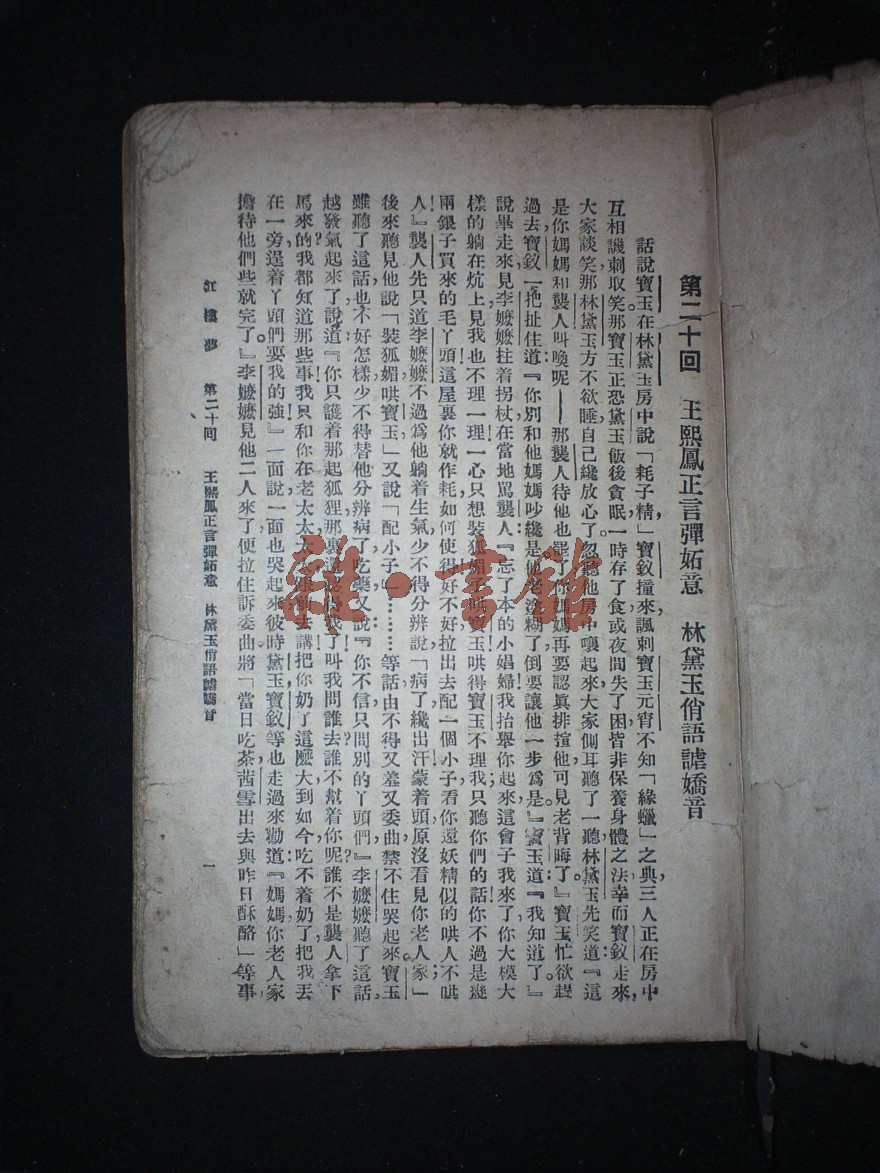 第二十回　王熙鳳正言彈妬意　林黛玉俏語謔嬌音
話說寶玉在林黛玉房中說「耗子精」寶釵撞來諷刺寶玉元宵不知「緣蠟」之典三人正在房中
互相譏刺取笑那寶玉正恐黛玉飯後貪眠一時存了食或夜間失了困皆非保養身體之法幸而寶釵走來，
大家談笑那林黛玉方不欲睡自己纔放心了忽聽他房中嚷起來大家側耳聽了一聽林黛玉先笑道：『這
是你媽媽和襲人叫喚呢——那襲人待他也罷了你媽媽再要認眞排揎他可見老背晦了。』寶玉忙欲趕
過去寶釵一把扯住道：『你別和他媽媽吵纔是他老糊塗了倒要讓他一步爲是。』寶玉道：『我知道了。』
說畢走來見李嬤嬤柱着拐杖在當地罵襲人『忘了本的小娼婦我抬舉你起來這會子我來了你大模大
樣的躺在炕上見我也不理一理一心只想裝狐媚子哄寶玉哄得寶玉不理我只聽你們的話你不過是幾
兩銀子買來的毛丫頭這屋裏你就作耗如何使得好不好拉出去配一個小子看你還妖精似的哄人不哄
人！』襲人先只道李嬤嬤不過爲他躺着生氣少不得分辨說「病了纔出汗蒙着頭原沒看見你老人家；」
後來聽見他說「裝狐媚哄寶玉」又說「配小子」………等話由不得又羞又委曲禁不住哭起來寶玉
雖聽了這話也不好怎樣少不得替他分辨病了吃藥又說：『你不信只問別的丫頭們。』李嬤嬤聽了這話，
越發氣起來了說道：『你只護着那起狐狸那裏還認得我了叫我問誰去誰不幫着你呢誰不是襲人拿下
馬來的我都知道那些事我只和你在老太太太太跟前去講把你奶了這麼大到如今吃不着奶了把我丟
在一旁逞着丫頭們要我的強！』一面說一面也哭起來彼時黛玉寶釵等也走過來勸道：『媽媽你老人家
擔待他們些就完了。』李嬤嬤見他二人來了便拉住訴委曲將「當日吃茶茜雪出去與昨日酥酪」等事
紅樓夢　第二十回　王熙鳳正言彈妬意　林黛玉俏語謔嬌音　一
雜·書館